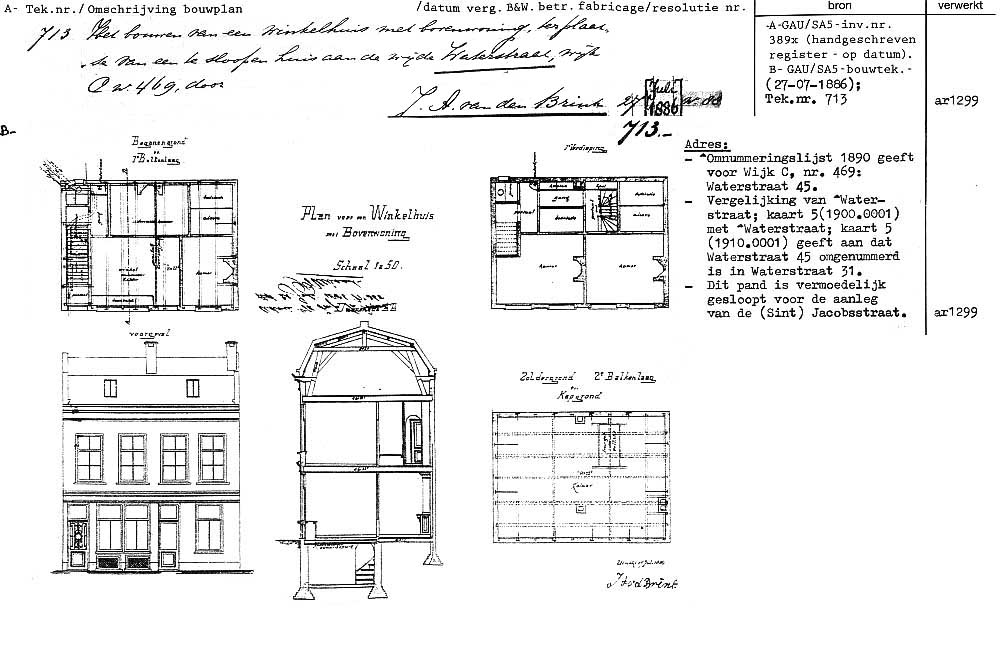 A- Tek.nr./ Omschrijving bouwplan
/datum verg. B&W. betr. fabricage/resolutie nr.
bron
verwerkt
713 Het bouwen van een winkelhuis met bovenwoning, ter plaat,
se van een te sloopen huis aan de wijde Waterstraat, wijk
C no. 469, door
J. A. van den Brink
27
Juli
1886
-A-GAU/SA5-inv.nr.
389x (handgeschreven
register - op datum).
B- GAU/SA5-bouwtek.-
(27-07-1886);
Tek.nr. 713
ar1299
B-
713.-
Beganengrond
1e Balklaag
1e Verdieping
Plan voor een Winkelhuis
met Bovenwoning
Schaal 1 à 50.
winkel
Kamer
gang
Kamer
Kamer
Adres:
- ^Omnummeringslijst 1890 geeft
voor Wijk C, nr. 469:
Waterstraat 45.
- Vergelijking van ^Water-
straat; kaart 5(1900.0001)
met ^Waterstraat; kaart 5
(1910.0001) geeft aan dat
Waterstraat 45 omgenummerd
is in Waterstraat 31.
- Dit pand is vermoedelijk
gesloopt voor de aanleg
van de (Sint) Jacobsstraat.
ar1299
voorgevel
Zoldergrond 2e Balkenlaag
en
Kapgrond
Zolder
J A v d Brink